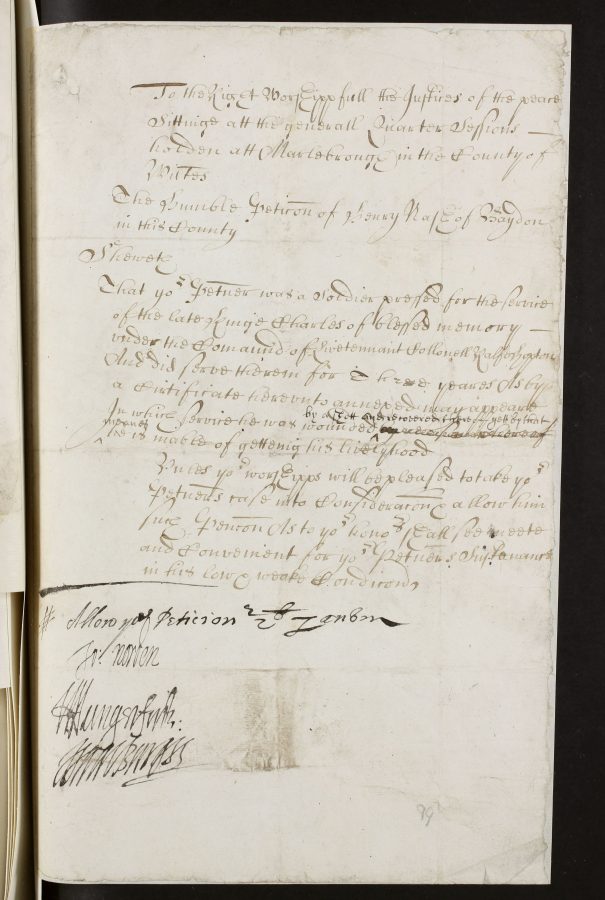 To the Right Worshippfull the Justices of the peace
Sittinge att the generall Quarter Sessions
holden att Marlebrough in the County of
Wiltes
The Humble Peticon of Henry Nash of Haydon
in this County
Sheweth
That yor Petner was a Soldier pressed for the service
of the late Kinge Charles of blessed memory
vnder the Comaund of Livetennaunt Collonell
And did serve therein for three yeares As by
a Certificate hereunto annexed may appeare
In which service he was wounded by a
meanes he is vnable of gettenig his livelyhood
Vnles yor worshipps will bee pleased to take yor
Petners case into Consideracon & allow him
such Pencon As to yor honors shall seeme meete
and Convenient for yor Petners Sustenance
in his low & weake Condicon
Allow ye Peticion
99